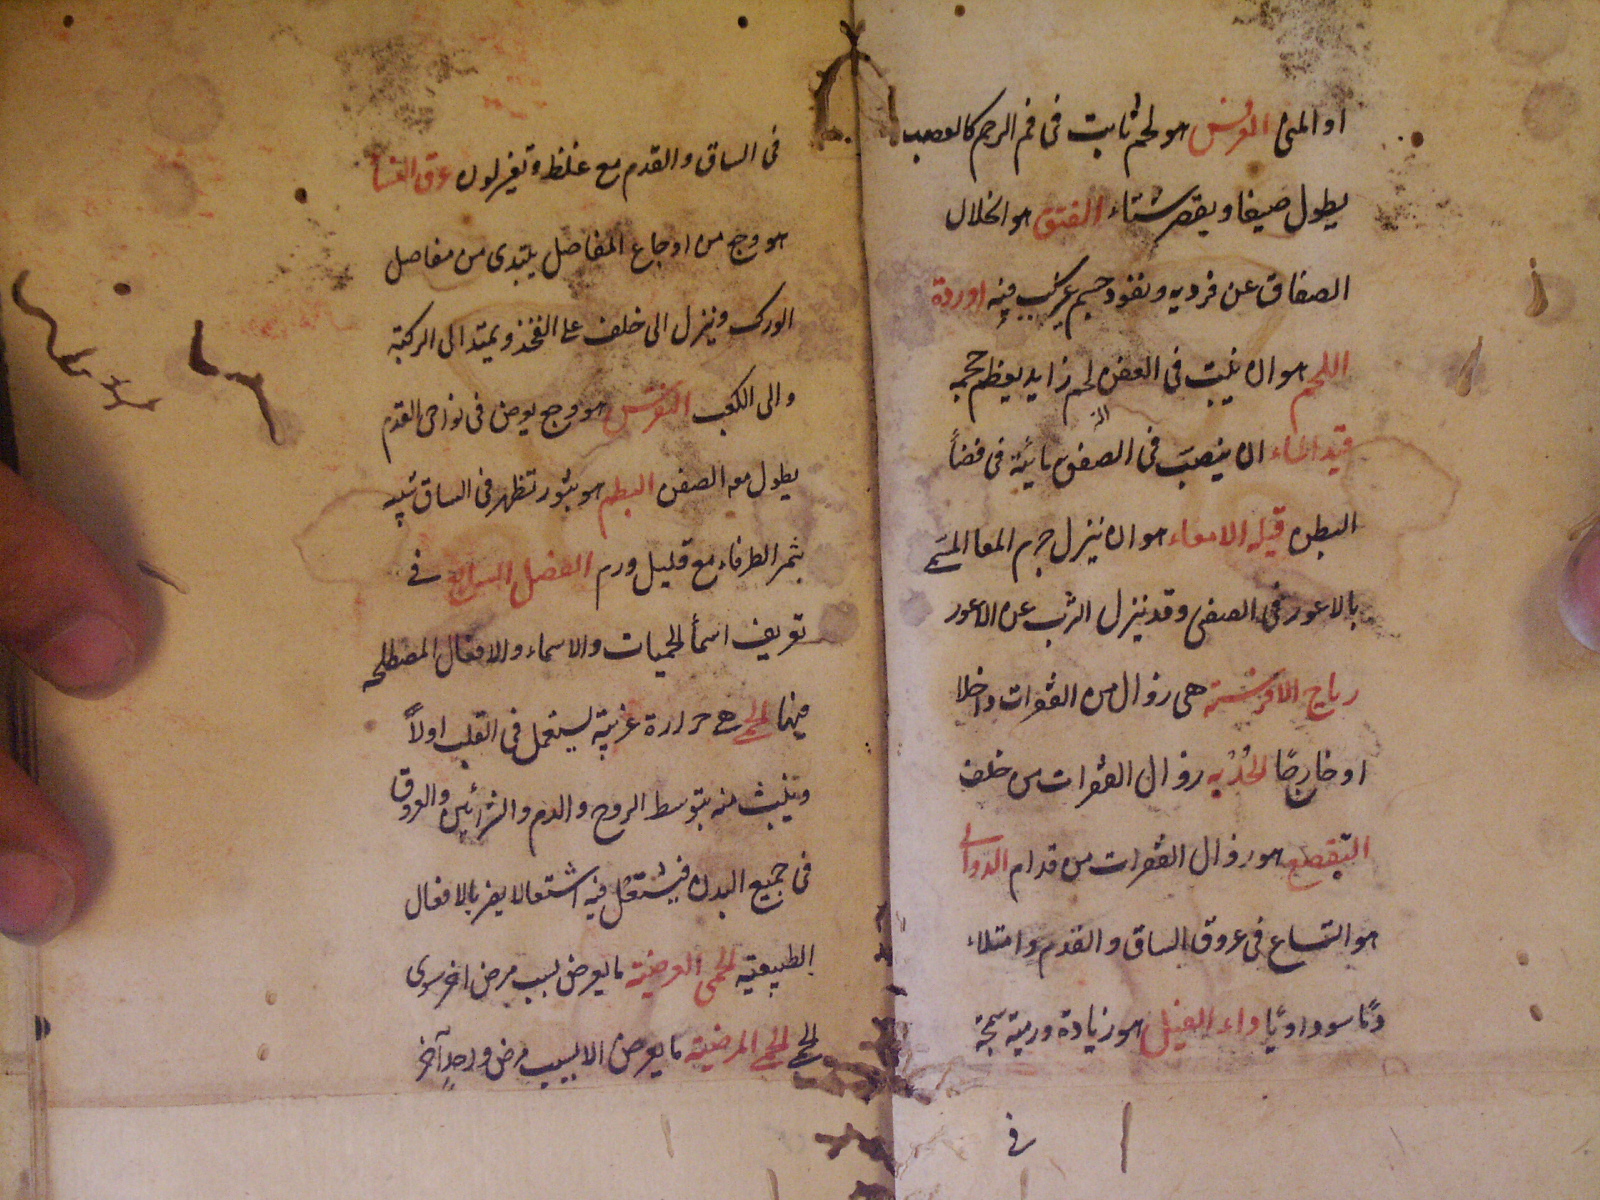 او المنى هو لحم ثابت فى فم الرحم كالعصب
يطول صيفا ويقصر شتاء الفتق هو انحلال
الصفاق عن فرديه ونفوذ جسم غريب فيه اوردة
اللحم هو ان ينبت فى الصفن لحم زايد يعظم حجمه
قيلة الماء ان ينصب فى الصفن مائية فى فضأ
البطن قيلة الامعاء هو ان ينزل جرم المعا المسمى
بالاعور فى الصفن وقد ينزل الثرب عن الاعور
رياح الافرسة هى زوال من الفقرات داخلا
او خارجًا الحُدْبه زوال الفقرات من خلف
التقصع هو زوال الفقرات من قدام الدوالى
هو اتساع فى عروق الساق والقدم وامتلاء
دمًا سوداويًا داء الفيل هو زيادة ورمية سمجة
فى
فى الساق والقدم مع غلظ وتغير لون عرق النسا
هو وجع من اوجاع المفاصل يبتدى من مفاصل
الورك وينزل الى خلف على الفخذ ويمتد الى الركبة
والى الكعب النقرس هو وجع يعرض فى نواحى القدم
يطول معه الصفن البطم هو بثور تظهر فى الساق شبيه
بثمر الطرفاء مع قليل ورم الفصل السابع فى
تعريف اسمأ الحميات والاسماء والافعال المصطلحه
فيها الحمى هى حرارة غريبة تشتعل فى القلب اولاً
وينبث منه بتوسط الروح والدم والشرائين والعروق
فى جميع البدن فيشتعل فيه اشتعالا يضر بالافعال
الطبيعية الحمى العرضية ما يعرض بسبب مرض اخر سوى
الحمى الحمى المرضية ما يعرض الا بسبب مرض واحد آخر